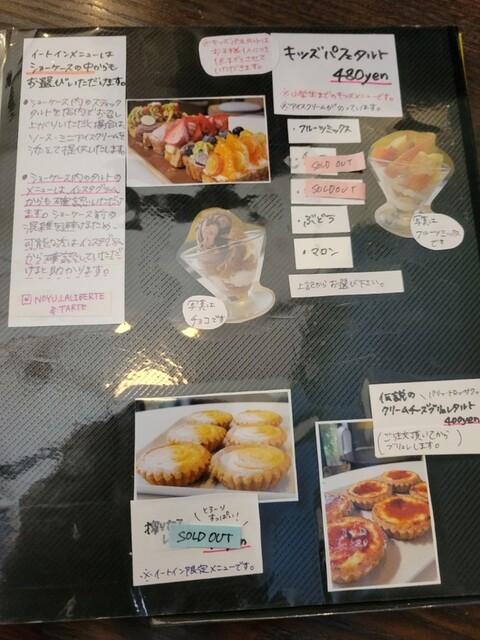 イートインメニューは
ショーケースの中からも
お選びいただけます。
●ショーケース内のスティック
タルトを店内でお召し
上がりいただく場合は
ソース・ミニアイスクリームを
●ショーケース内のタルトの
メニューはインスタグラム
からも確認いただけ
ます。ショーケース前の
混雑を避けるため、
可能な方はインスタグラム
から確認していただ
けると助かります。
NOYU.LALIBERTE
&.TARTE
※キッズパフェタルトは
お子様1人につき
いただきます。
キッズパフェタルト
480yen
※小学生までのキッズメニューです。
※アイスクリームがのっています。
・フルーツミックス
SOLD OUT
SOLD OUT
・ぶどう
・マロン
上記からお選び下さい。
写真は
フルーツミックス
です
写真は
チョコです
伝説の
クリームチーズブリュレタルト
400yen
(ご注文頂いてから
ブリュレします。)
とろーり
すっぱい!
SOLD OUT
※イートイン限定メニューです。